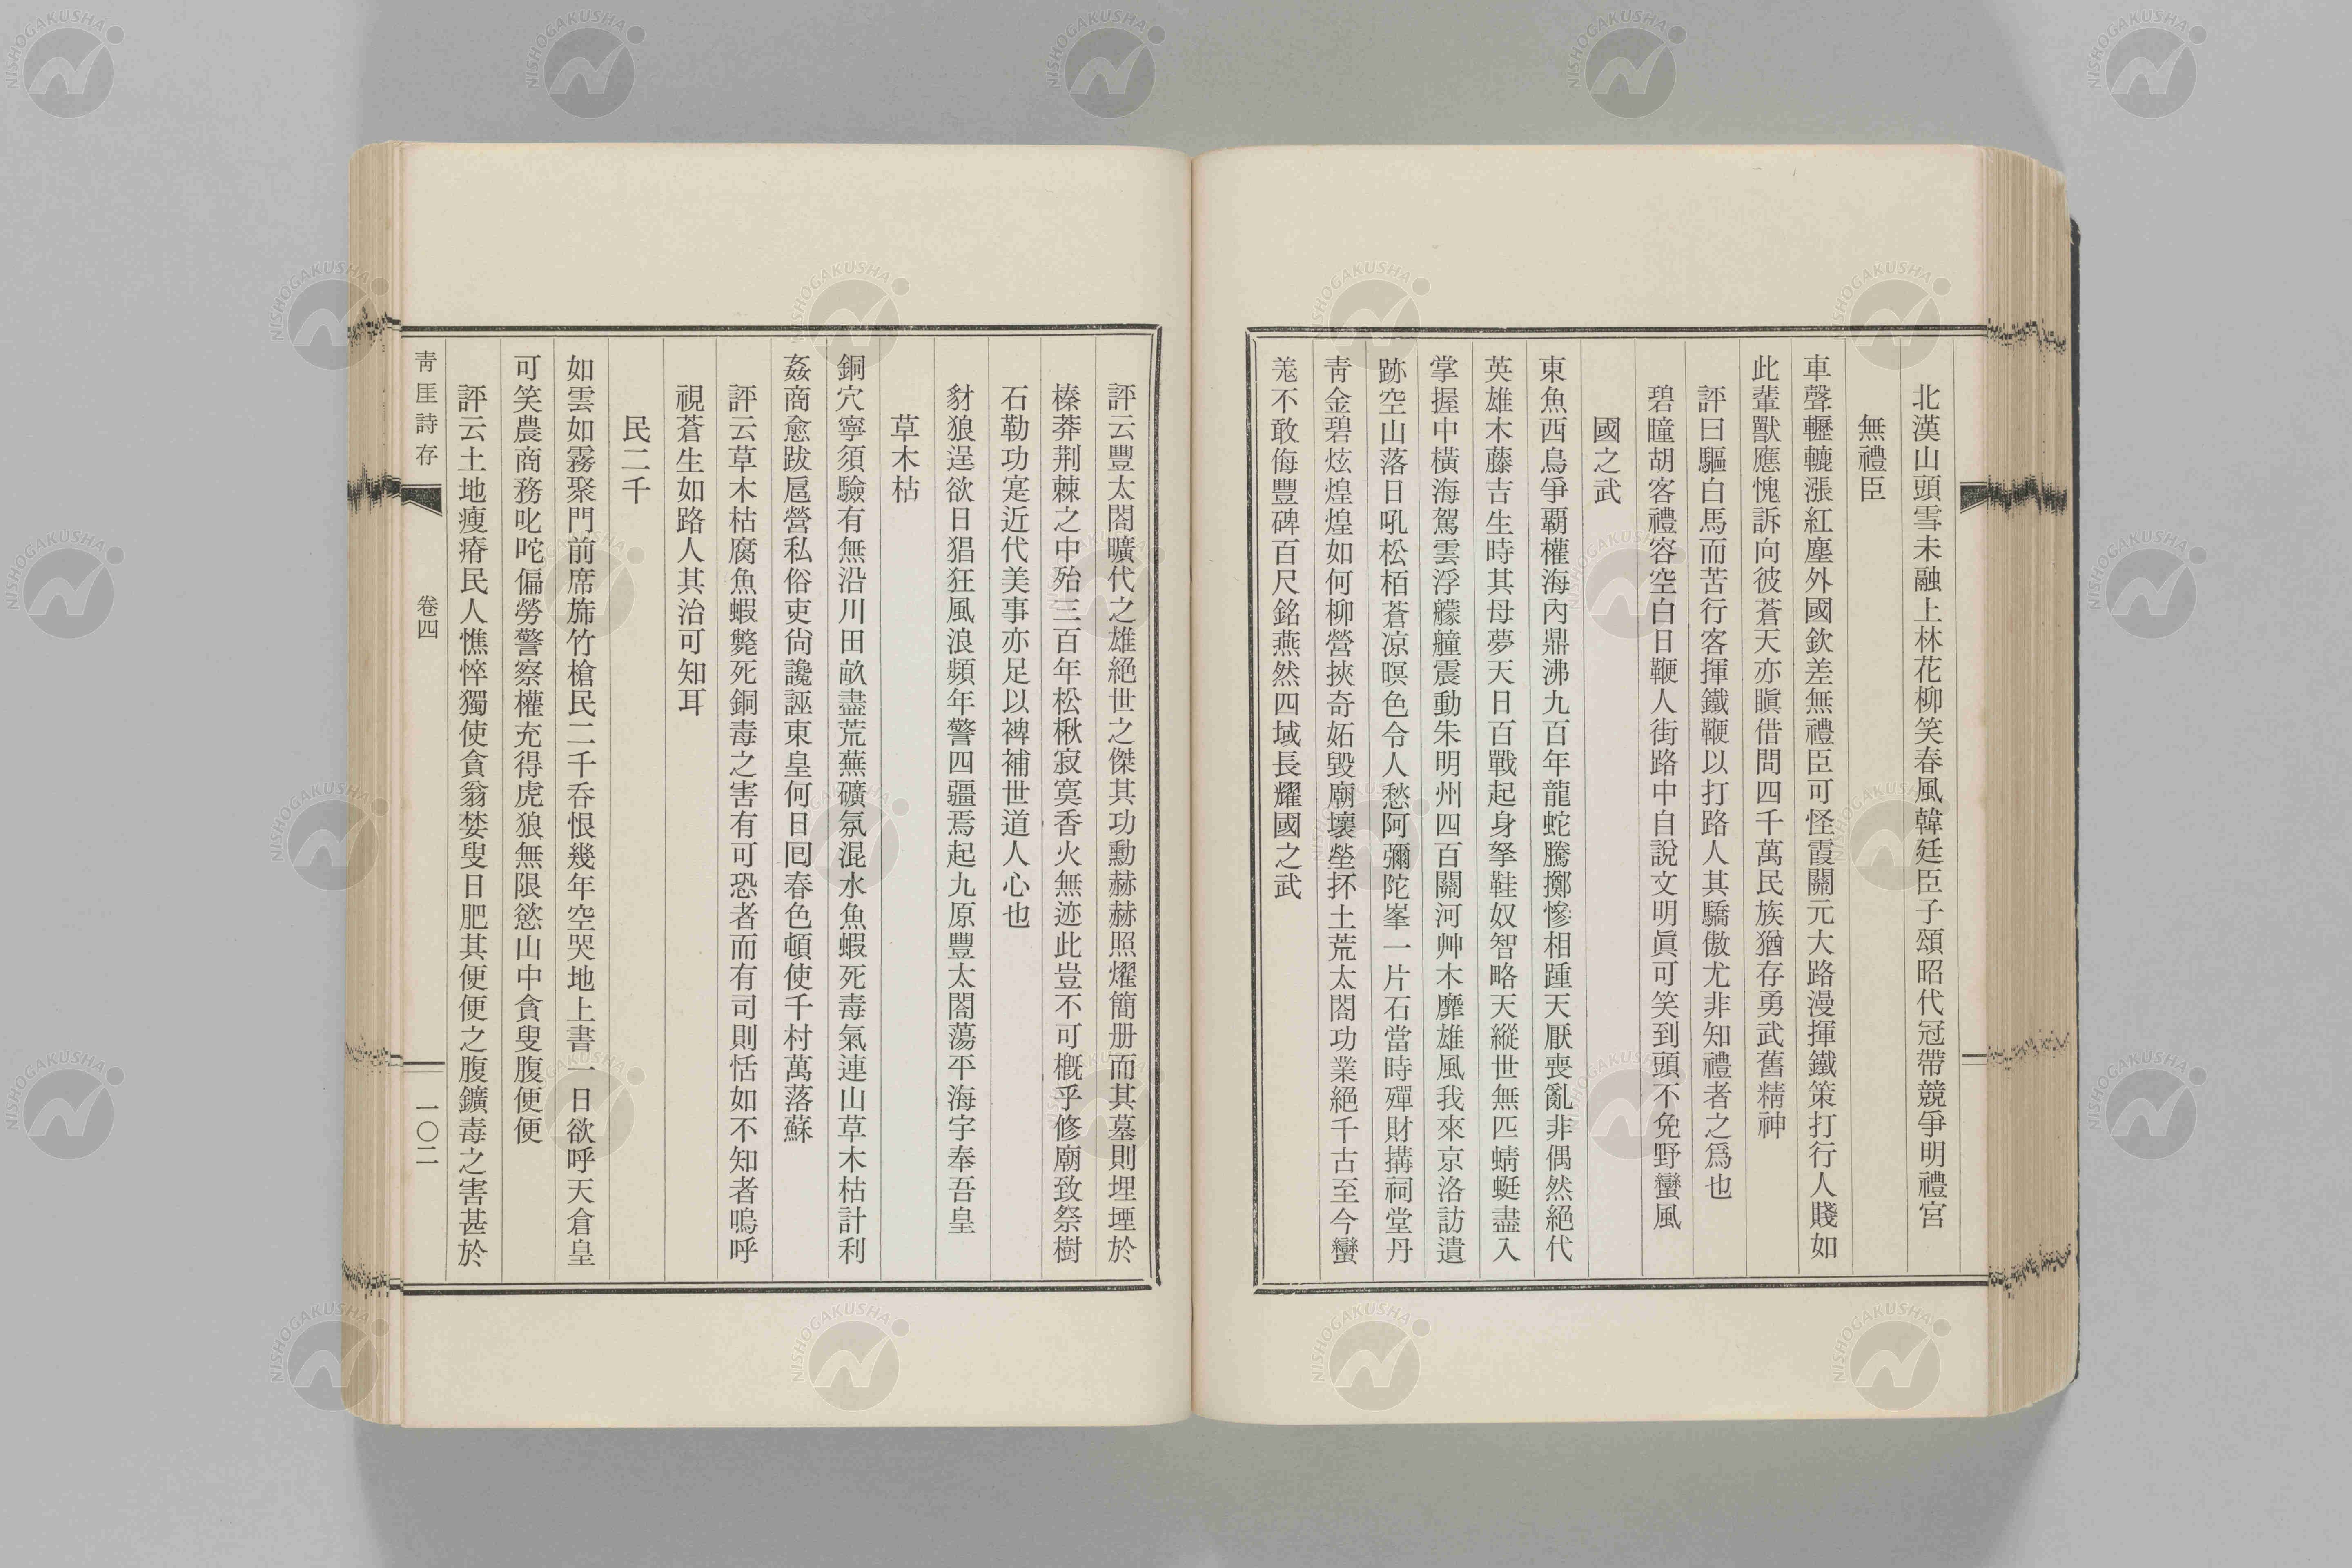 北漢山頭雪未融上林花柳笑春風韓廷臣子頌昭代冠帶競爭明禮宮
無禮臣
車聲轣轆漲紅塵外國欽差無禮臣可怪霞關元大路漫揮鐵策打行人賤如
此輩獸應愧訴向彼蒼天亦瞋借問四千萬民族猶存勇武舊精神
評曰驅白馬而苦行客揮鐵鞭以打路人其驕傲尤非知禮者之爲也
碧瞳胡客禮容空白日鞭人街路中自說文明眞可笑到頭不免野蠻風
國之武
東魚西鳥爭覇權海內鼎沸九百年龍蛇騰擲慘相踵天厭喪亂非偶然絕代
英雄木藤吉生時其母夢天日百戰起身拏鞋奴智略天縱世無匹蜻蜓盡入
掌握中橫海駕雲浮艨艟震動朱明州四百關河艸木靡雄風我來京洛訪遺
跡空山落日吼松栢蒼凉暝色令人愁阿彌陀峯一片石當時殫財搆祠堂丹
靑金碧炫煌煌如何柳營挾奇妬毀廟壞塋抔土荒太閤功業絕千古至今蠻
羌不敢侮豐碑百尺銘燕然四域長耀國之武
評云豐太閤曠代之雄絕世之傑其功勳赫赫照燿簡册而其墓則埋堙於
榛莽荆棘之中殆三百年松楸寂寞香火無迹此豈不可慨乎修廟致祭樹
石勒功寔近代美事亦足以裨補世道人心也
豺狼逞欲日猖狂風浪頻年警四疆焉起九原豐太閤蕩平海宇奉吾皇
草木枯
銅穴寧須驗有無沿川田畝盡荒蕪礦氛混水魚蝦死毒氣連山草木枯計利
姦商愈跋扈營私俗吏尙讒誣東皇何日回春色頓使千村萬落蘇
評云草木枯腐魚蝦斃死銅毒之害有可恐者而有司則恬如不知者嗚呼
視蒼生如路人其治可知耳
民二千
如雲如霧聚門前席旆竹槍民二千呑恨幾年空哭地上書一日欲呼天倉皇
可笑農商務叱咤偏勞警察權充得虎狼無限慾山中貪叟腹便便
評云土地瘦瘠民人憔悴獨使貪翁婪叟日肥其便便之腹鑛毒之害甚於
靑厓詩存
卷四
一〇二